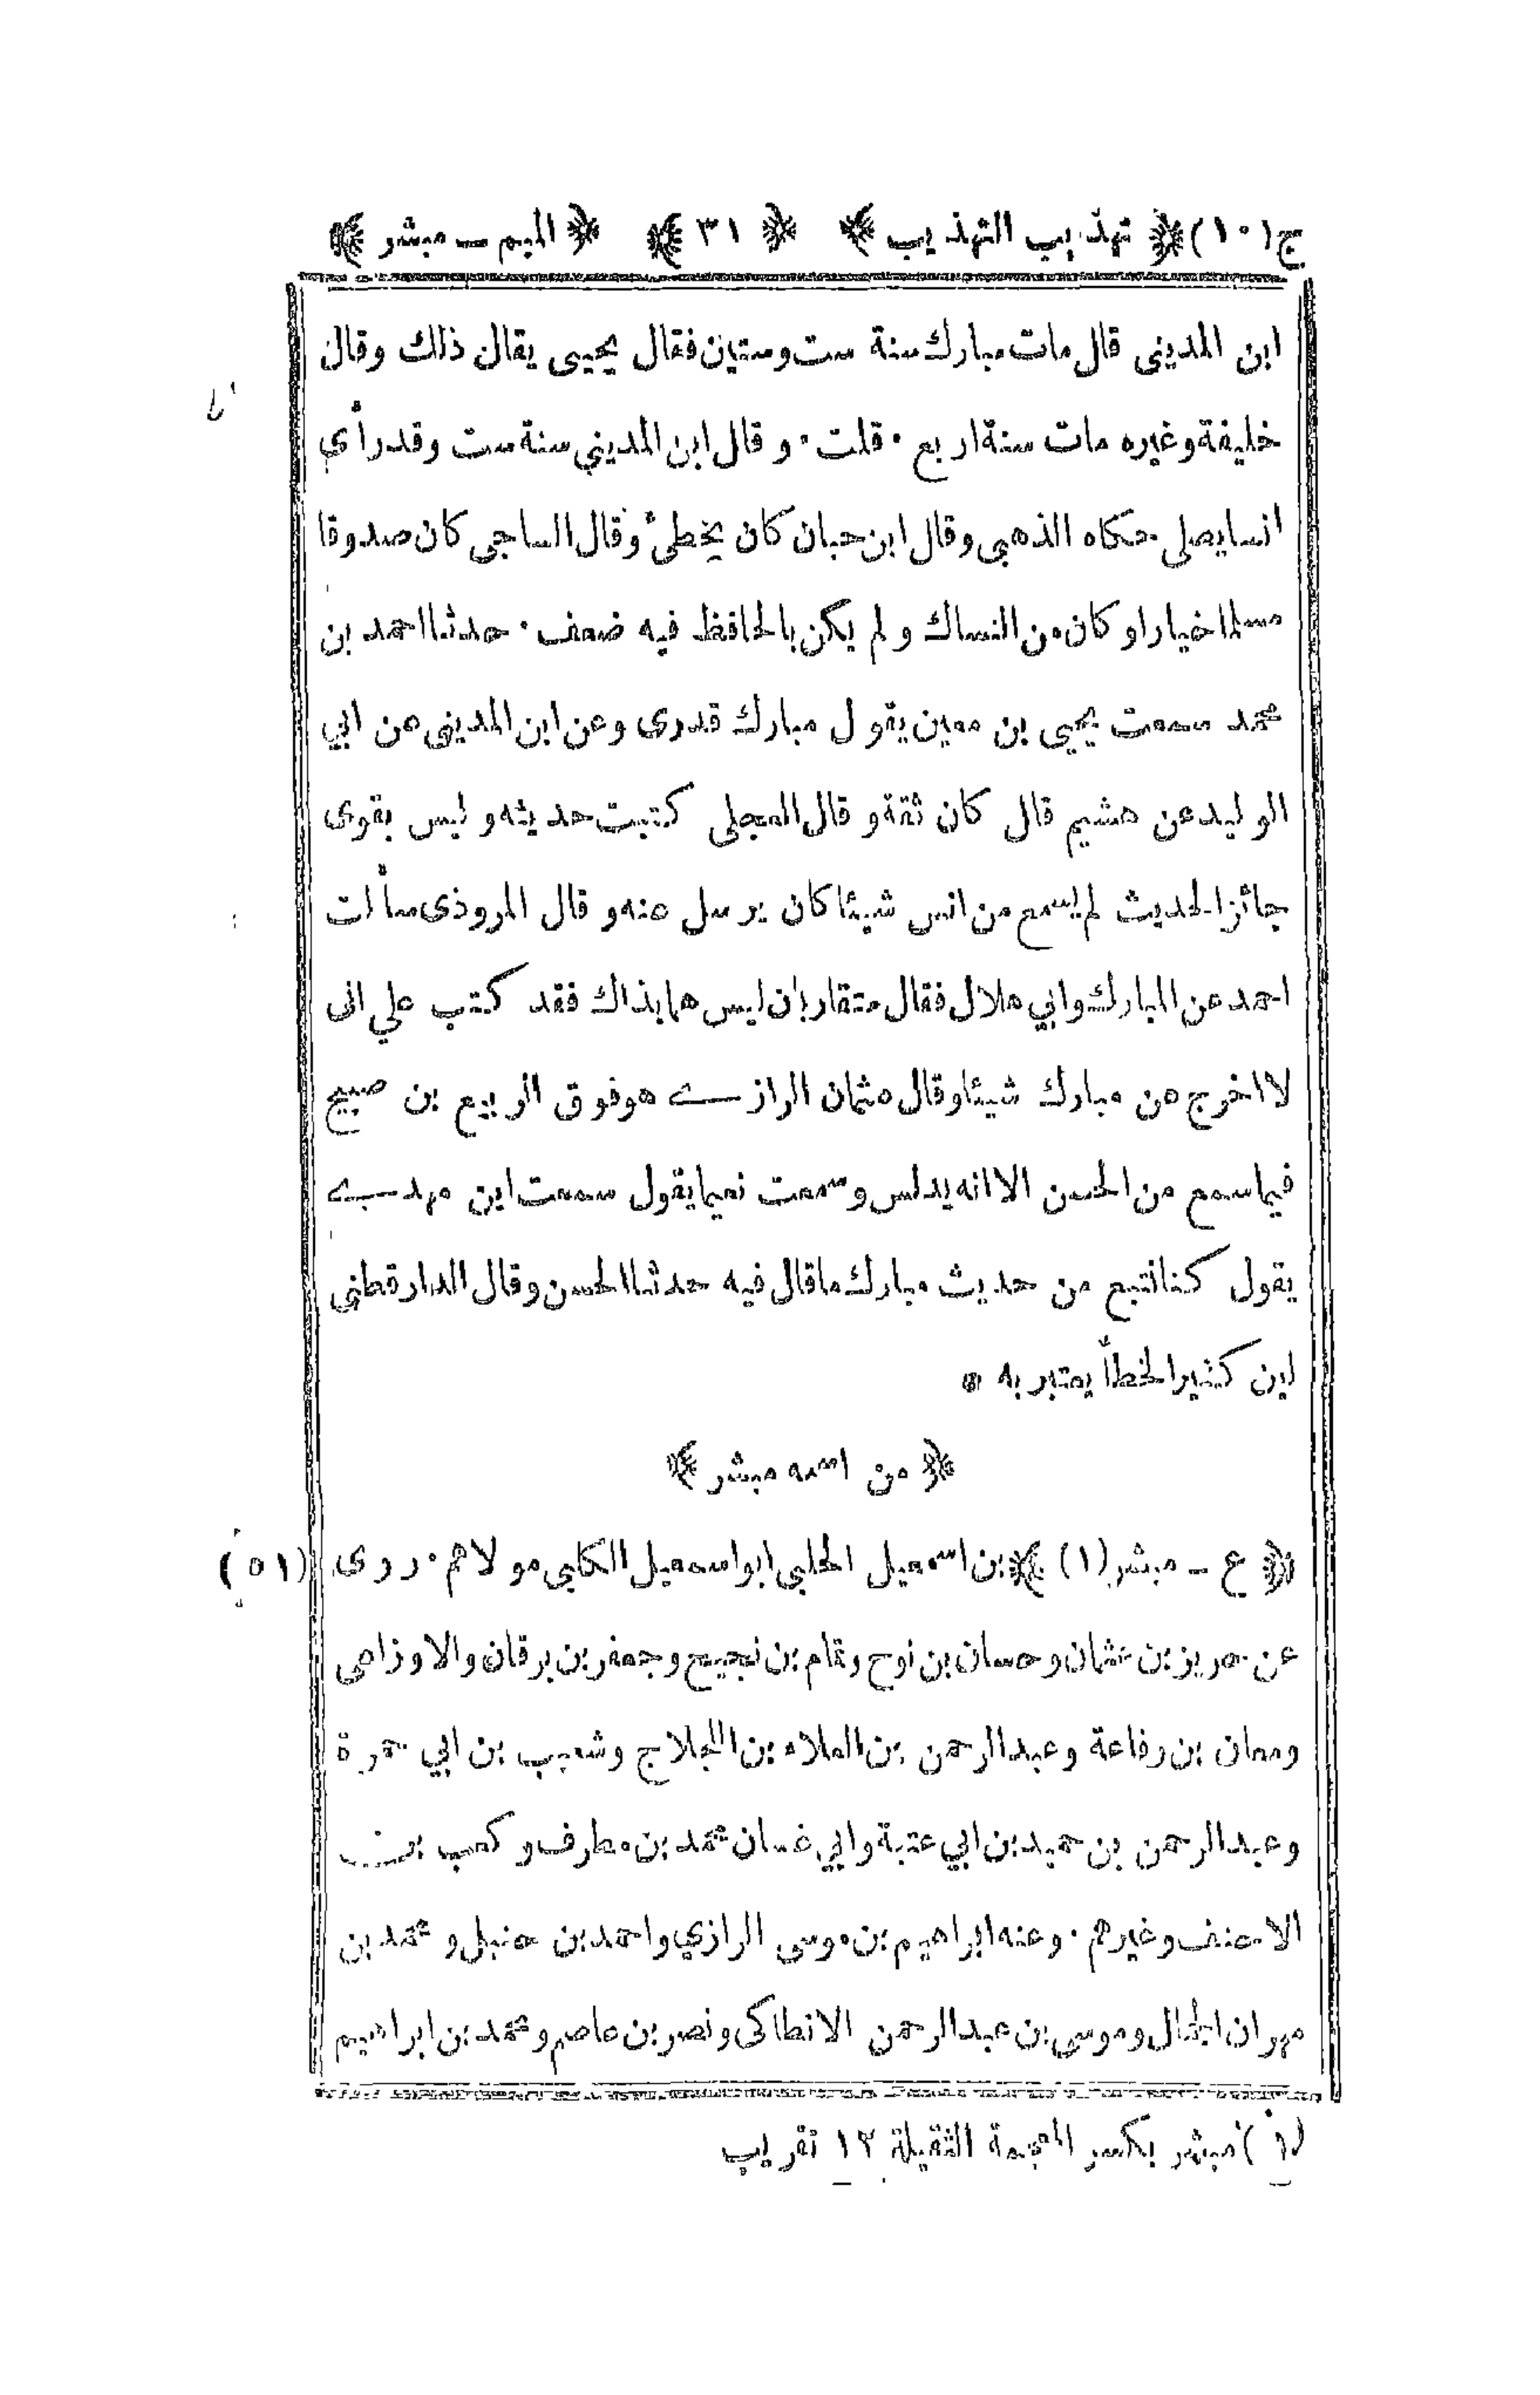 ج(١٠) ﴿ تهذيب التهذيب ﴾ ﴿ ٣١ ﴾ ﴿ الميم ــ مبشر ﴾
ابن المدينى قال مات مبارك سنة ست وستين فقال يحيى يقال ذلك وقال
خليفة وغيره مات سنة اربع ٠ قلت ٠ و قال ابن المديني سنة ست وقد رأي
انسا يصلى حكاه الذهبى وقال ابن حبان كان يخطئ وقال الساجى كان صدوقا
مسلما خيارا و كان من النساك و لم يكن بالحافظ فيه ضعف ٠ حدثنا احمد بن
محمد سمعت يحيى بن معين يقول مبارك قدرى وعن ابن المدينى عن ابي
الوليد عن هشيم قال كان ثقة و قال العجلى كتبت حديثه و ليس بقوى
جائز الحديث لم يسمع من انس شيئا كان يرسل عنه و قال المروذى سألت
احمد عن المبارك وابي هلال فقال متقاربان ليس هما بذاك فقد كتب علي انى
لا اخرج عن مبارك شيئا وقال عثمان الرازے هو فوق الربيع بن صبيح
فيما سمع من الحسن الا انه يدلس و سمعت نعيما يقول سمعت ابن مهدے
يقول كنا نتبع من حديث مبارك ما قال فيه حدثنا الحسن وقال الدارقطني
لين كثير الخطأ يعتبر به *
﴿ من اسمه مبشر ﴾
﴿ ع ـ مبشر (١) ﴾ بن اسمعيل الحلبي ابو اسمعيل الكلبى مولاهم ٠ روى (٥١)
عن حريز بن عثمان و حسان بن نوح و تمام بن نجيح و جعفر بن برقان والاوزاعى
ومعان بن رفاعة وعبد الرحمن بن العلاء بن اللجلاج وشعيب بن ابي حمزة
وعبد الرحمن بن حميد بن ابي عتبة وابي غسان محمد بن مطرف و كعب بن
الاحنف وغيرهم ٠ وعنه ابراهيم بن موسى الرازي واحمد بن حنبل و محمد بن
مهران الجمال وموسى بن عبد الرحمن الانطاكى ونصر بن عاصم ومحمد بن ابراهيم
(١) مبشر بكسر المعجمة الثقيلة ١٢ تقريب